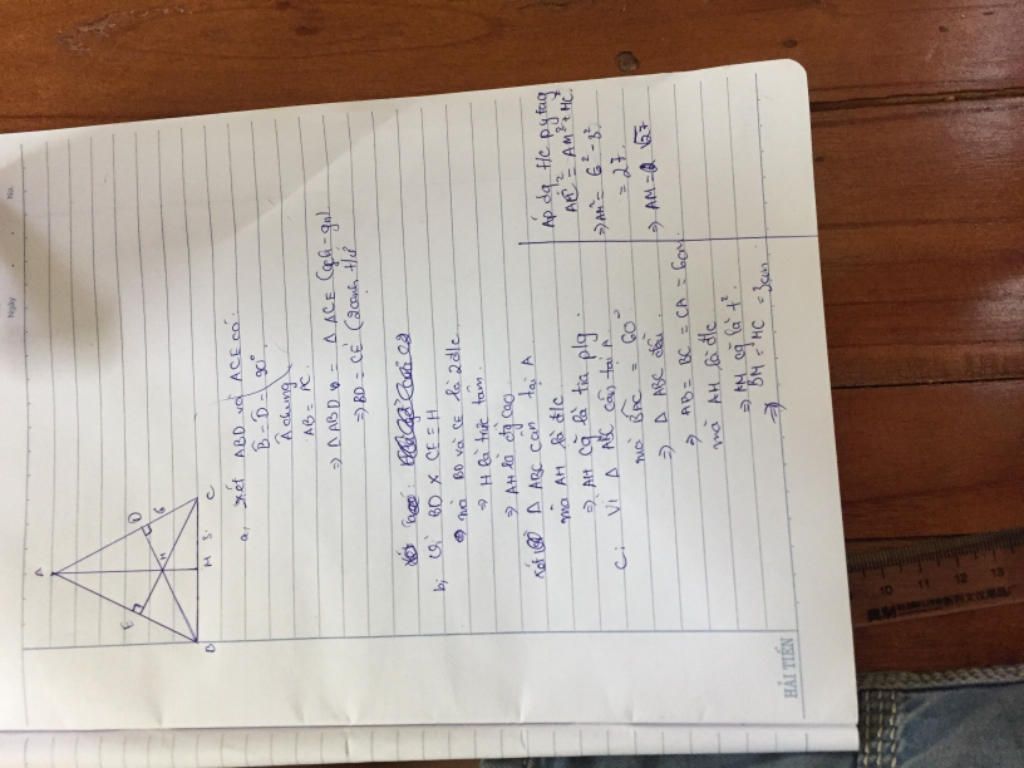 Ngày
No.
A
E
D
H
6
B
H
3
C
a, xét ABD và ACE có:
B = D = 90°
Â chung
AB = AC
⇒ Δ ABD = Δ ACE (gh - gn)
⇒ BD = CE (2 cạnh t/ứ)
b, Vì BD x CE = H
mà BD và CE là 2 đ/c
⇒ H là trực tâm.
⇒ AH là đg cao
xét Δ ABC cân tại A
mà AH là đ/c
⇒ AH cg là tia p/g.
C; Vì Δ ABC cân tại A
mà BAC = 60°
⇒ Δ ABC đều.
⇒ AB = BC = CA = 6cm
mà AH là đ/c
⇒ AM cg là t²
⇒ BM = MC = 3cm
Áp dg t/c pytag
AC² = AM² + MC²
⇒ AM² = 6² - 3²
= 27.
⇒ AM = √27
HẢI TIẾN
10 11 12 13